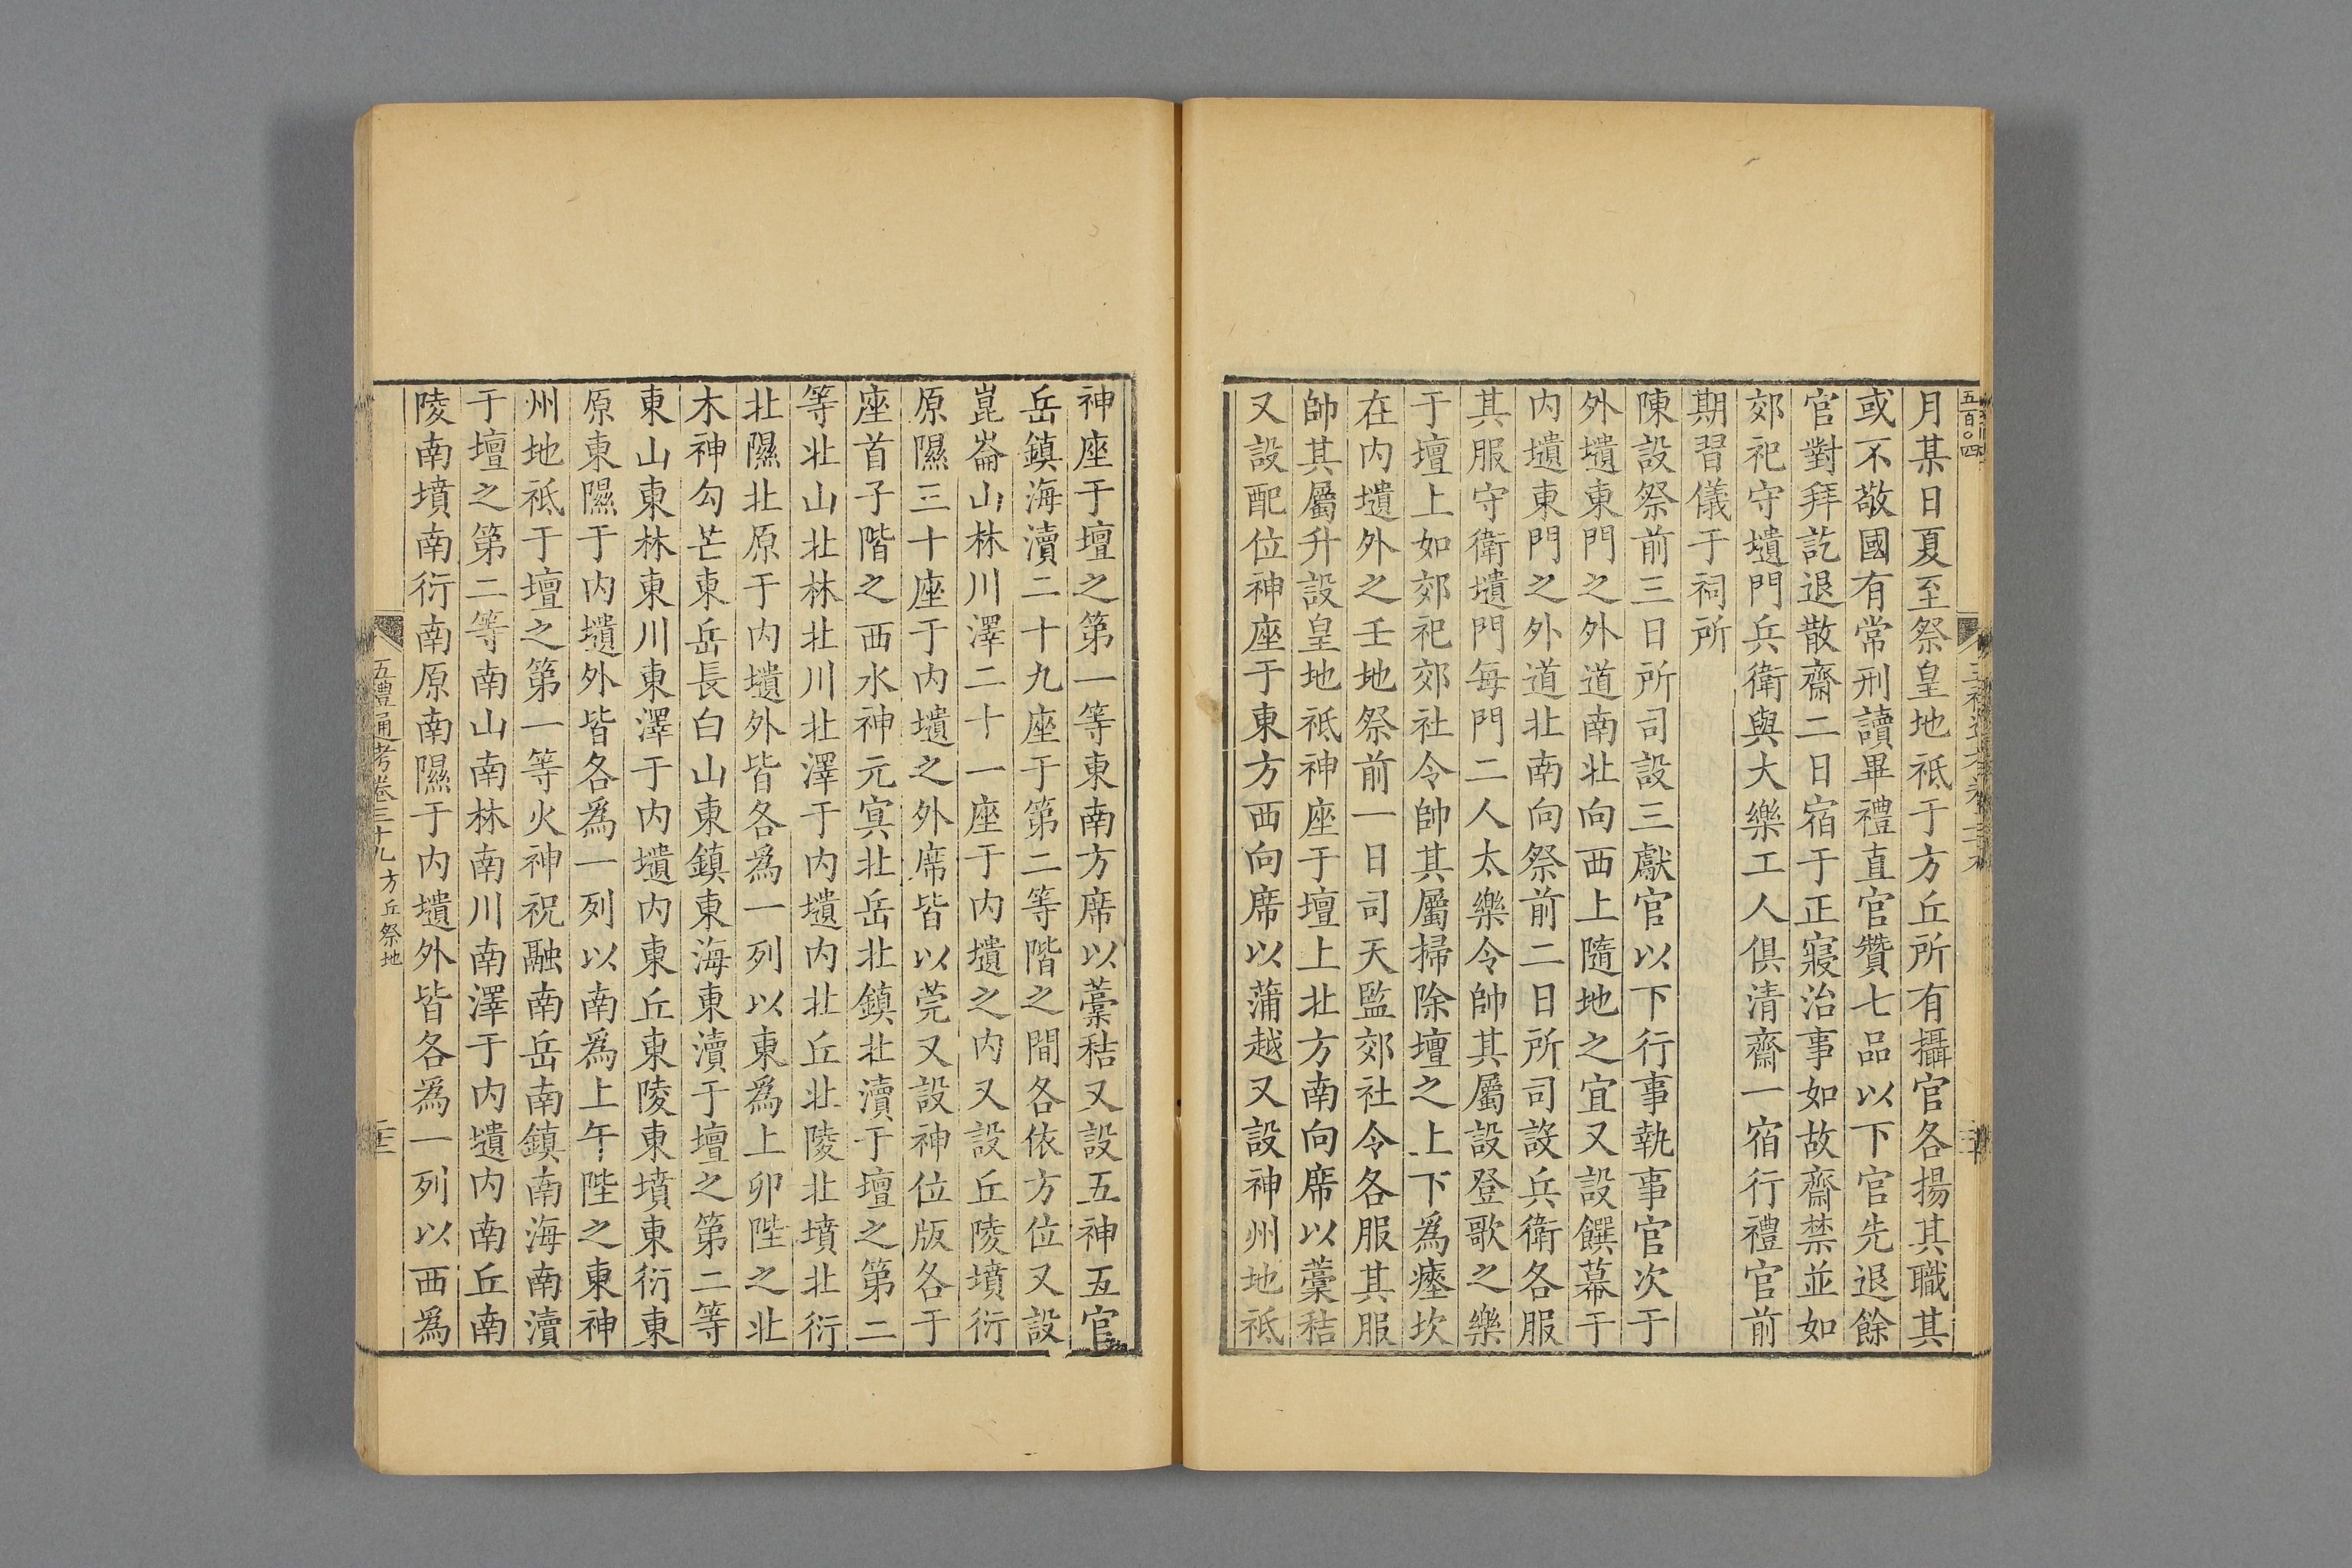 五百○四
月某日夏至祭皇地祗于方丘所有攝官各揚其職其
或不敬國有常刑讀畢禮直官贊七品以下官先退餘
官對拜訖退散齋二日宿于正寢治事如故齋禁並如
郊祀守壝門兵衛與大樂工人俱清齋一宿行禮官前
期習儀于祠所
陳設祭前三日所司設三獻官以下行事執事官次于
外壝東門之外道南北向西上隨地之宜又設饌幕于
内壝東門之外道北南向祭前二日所司設兵衛各服
其服守衛壝門每門二人太樂令帥其屬設登歌之樂
于壇上如郊祀郊社令帥其屬掃除壇之上下為瘞坎
在内壝外之壬地祭前一日司天監郊社令各服其服
帥其屬升設皇地祗神座于壇上北方南向席以藁秸
又設配位神座于東方西向席以蒲越又設神州地祗
神座于壇之第一等東南方席以藁秸又設五神五官
岳鎮海瀆二十九座于第二等階之間各依方位又設
崑崙山林川澤二十一座于内壝之内又設丘陵墳衍
原隰三十座于内壝之外席皆以莞又設神位版各于
座首子階之西水神元冥北岳北鎮北瀆于壇之第二
等北山北林北川北澤于内壝内北丘北陵北墳北衍
北隰北原于内壝外皆各為一列以東為上卯陛之北
木神勾芒東岳長白山東鎮東海東瀆于壇之第二等
東山東林東川東澤于内壝内東丘東陵東墳東衍東
原東隰于内壝外皆各為一列以南為上午陛之東神
州地祗于壇之第一等火神祝融南岳南鎮南海南瀆
于壇之第二等南山南林南川南澤于内壝内南丘南
陵南墳南衍南原南隰于内壝外皆各為一列以西為
五禮通考卷三十九 方丘祭地